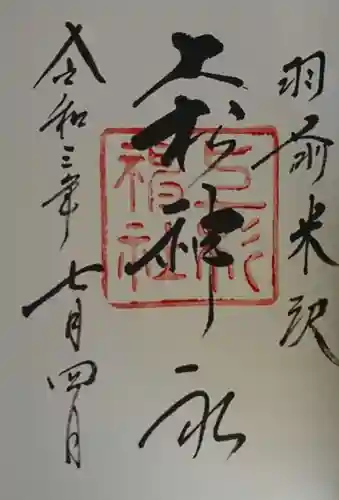 羽前米沢
上杉神社
令和三年七月四日
上杉
神社